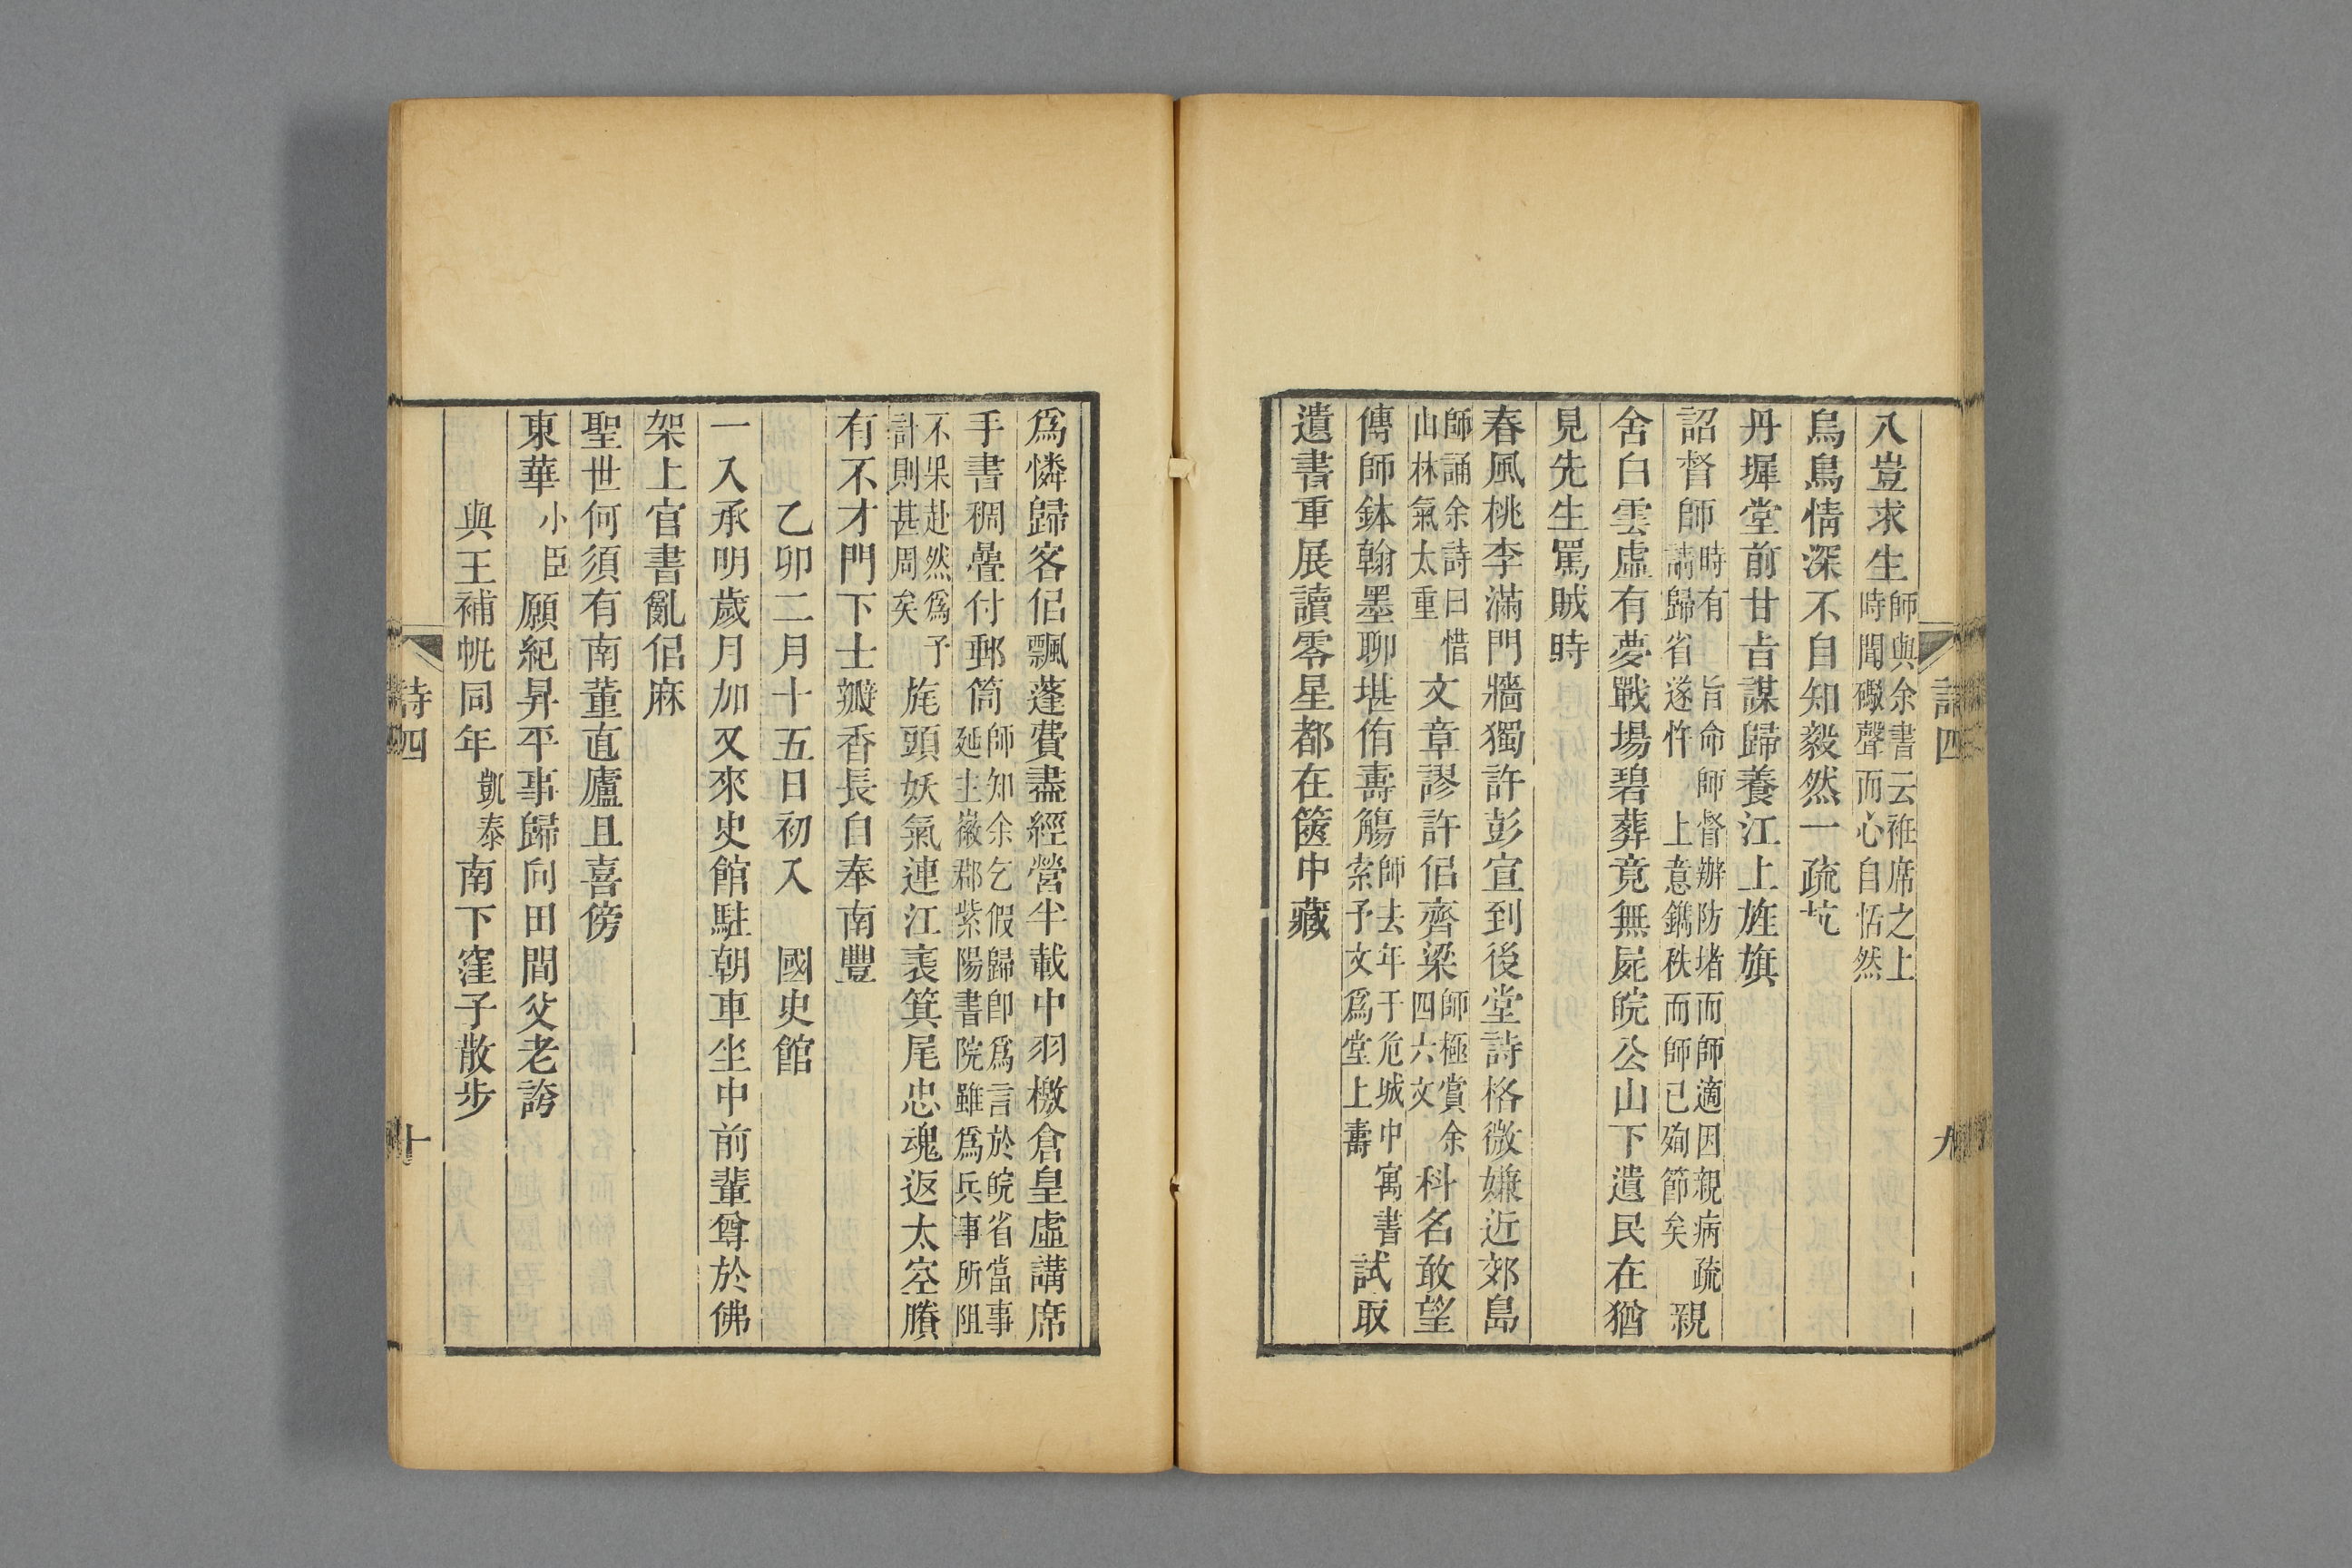 入豈求生師與余書云袵席之上時聞礮聲而心自恬然
烏鳥情深不自知毅然一疏亢
丹墀堂前甘旨謀歸養江上旌旗
詔督師時有旨命師督辦防堵而師適因親病疏請歸省遂忤上意鐫秩而師已殉節矣親
舍白雲虛有夢戰場碧葬竟無屍皖公山下遺民在猶
見先生罵賊時
春風桃李滿門牆獨許彭宣到後堂詩格微嫌近郊島
師誦余詩曰惜山林氣太重文章謬許侶齊梁師極賞余四六文科名敢望
傳師鉢翰墨聊堪侑壽觴師去年于危城中寓書索予文爲堂上壽試取
遺書重展讀零星都在篋中藏
詩四
九
爲憐歸客侶飄蓬費盡經營半載中羽檄倉皇虛講席
手書稠疊付郵筒師知余乞假歸卽爲言於皖省當事延主徽郡紫陽書院雖爲兵事所阻
不果赴然爲予計則甚周矣旄頭妖氣連江表箕尾忠魂返太空賸
有不才門下士瓣香長自奉南豐
乙卯二月十五日初入國史館
一入承明歲月加又來史館駐朝車坐中前輩尊於佛
架上官書亂侶麻
聖世何須有南董直廬且喜傍
東華小臣願紀昇平事歸向田間父老誇
與王補帆同年凱泰南下窪子散步
詩四
十